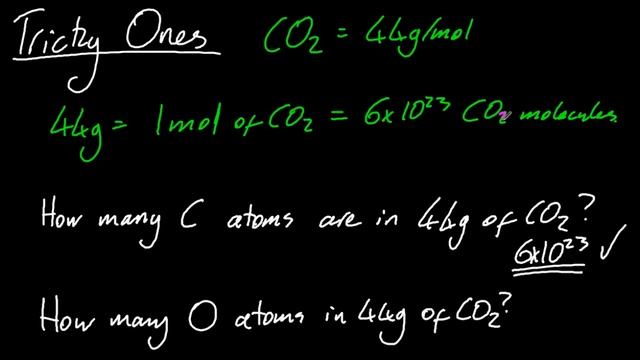 Tricky Ones CO₂ = 44g/mol
44g = 1mol of CO₂ = 6×10²³ CO₂ molecules.
How many C atoms are in 44g of CO₂?
6×10²³ ✓
How many O atoms in 44g of CO₂?